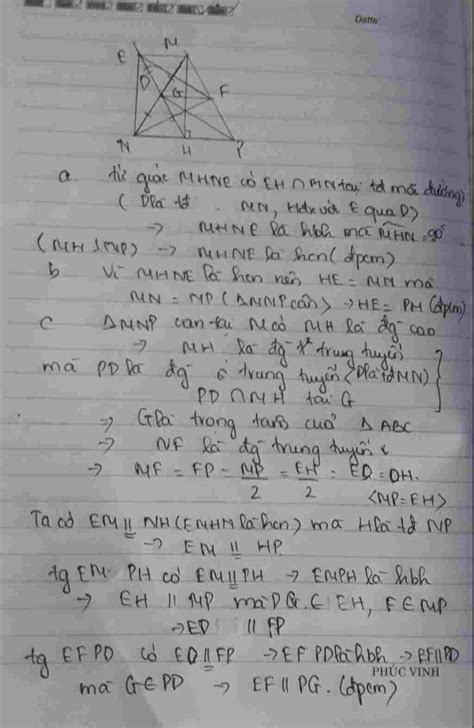 Date
E M
D G F
N H P
a tứ giác MHNE có EH ∩ MN tại tđ mỗi đường)
( D là tđ MN, H đx với E qua D)
→ MHNE là hbh mà MHN = 90°
(MH ⊥ NP) → MHNE là hcn (đpcm)
b Vì MHNE là hcn nên HE = MN mà
MN = MP (ΔMNP cân) → HE = PM (đpcm)
c ΔMNP cân tại M có MH là đg cao
→ MH là đg trung tuyến
mà PD là đg trung tuyến (D là tđ MN)
PD ∩ MH tại G
→ G là trọng tâm của Δ ABC
→ NF là đg trung tuyến
→ MF = FP = MP/2 = EH/2 = ED = DH.
<MP=EH>
Ta có EM // NH (EMHN là hcn) mà H là tđ NP
→ EM // HP
tg EM PH có EM // PH → EMPH là hbh
→ EH // MP mà D ∈ EH, F ∈ MP
→ ED // FP
tg EFPD có ED // FP → EFPD là hbh → EF // PD
PHÚC VINH
mà G ∈ PD → EF // PG. (đpcm)